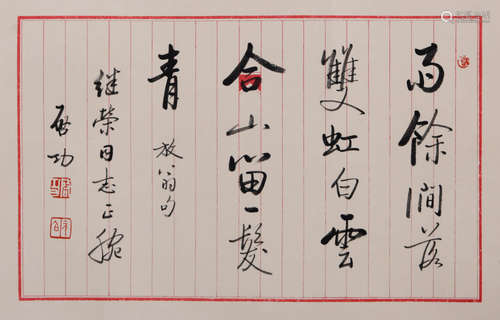 雨餘澗落
雙虹白雲
合山留一髮
青
放翁句
继榮同志正腕
啓功